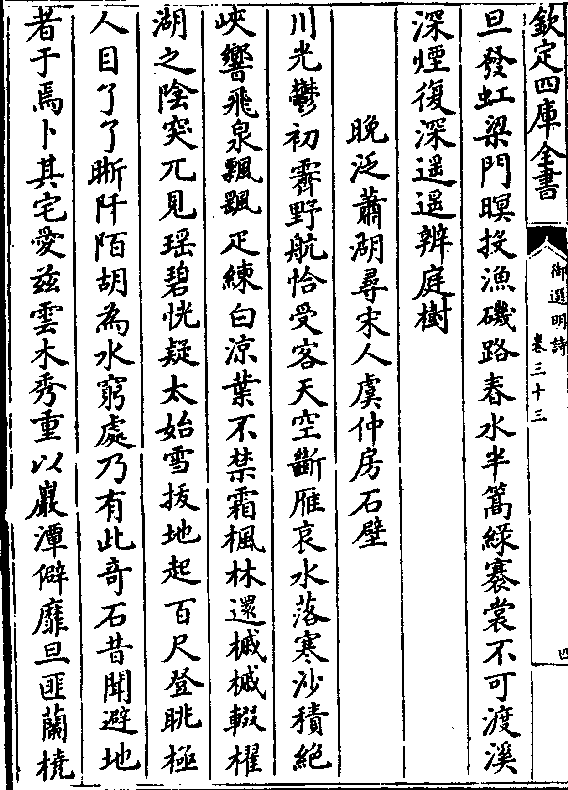 欽定四庫全書
御選明詩
卷三十三
四
旦發虹梁門暝投漁磯路春水半篙緑褰裳不可渡溪
深煙復深遥遥辨庭樹
晚泛蕭湖尋宋人虞仲房石壁
川光鬱初霽野航恰受客天空斷雁哀水落寒沙積絶
峽響飛泉飄飄疋練白涼葉不禁霜楓林還槭槭輟櫂
湖之隂突兀見瑶碧恍疑太始雪拔地起百尺登眺極
人目了了晰阡陌胡為水窮處乃有此奇石昔聞避地
者于焉卜其宅愛兹雲木秀重以巖潭僻靡旦匪蘭橈